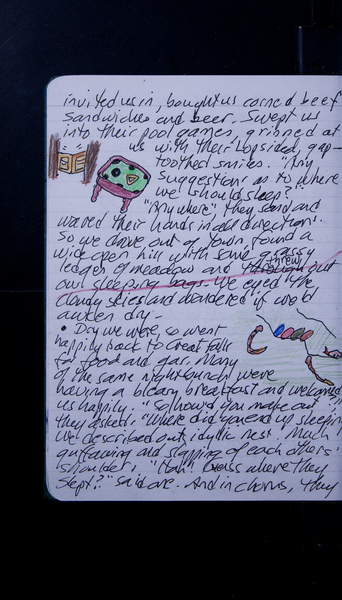 invited us in, bought us corned beef
sandwiches and beer. Swept us
into their pool games, grinned at
us with their lopsided, gap-
toothed smiles. "Any
suggestions as to where
we should sleep?"
"Anywhere", they said and
waved their hands in all directions.
So we drove out of town, found a
wide open hill with some grassy
ledges of meadow and threw out
our sleeping bags. We eyed the
cloudy skies and wondered if we'd
awken dry -
• Dry we were, so went
happily back to Great Falls
for food and gas. Many
of the same night bunch were
having a bleary breakfast and welcomed
us happily. "So how'd you make out",
they asked. "Where did you end up sleeping
We described out idyllic nest. Much
guffawing and slapping of each others'
shoulders, "Hah! Guess where they
slept?" said one. And in chorus, they